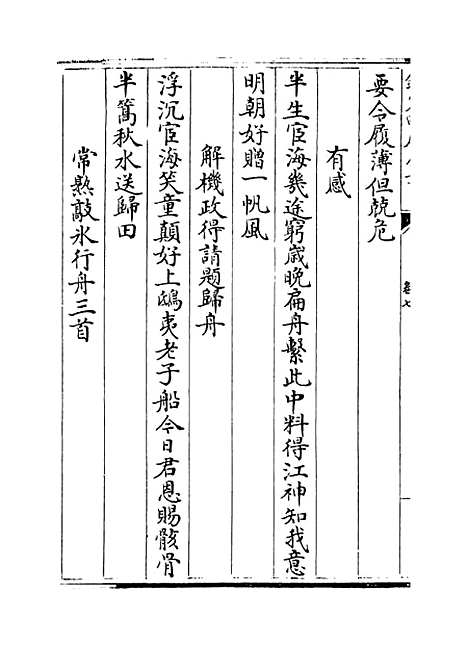 要令履薄但兢危
有感
半生宦海幾途窮歳晚扁舟繫此中料得江神知我意
明朝好贈一帆風
解機政得請題歸舟
浮沉宦海笑童顛好上鴟夷老子船今日君恩賜骸骨
半篙秋水送歸田
常熟敲氷行舟三首
卷七